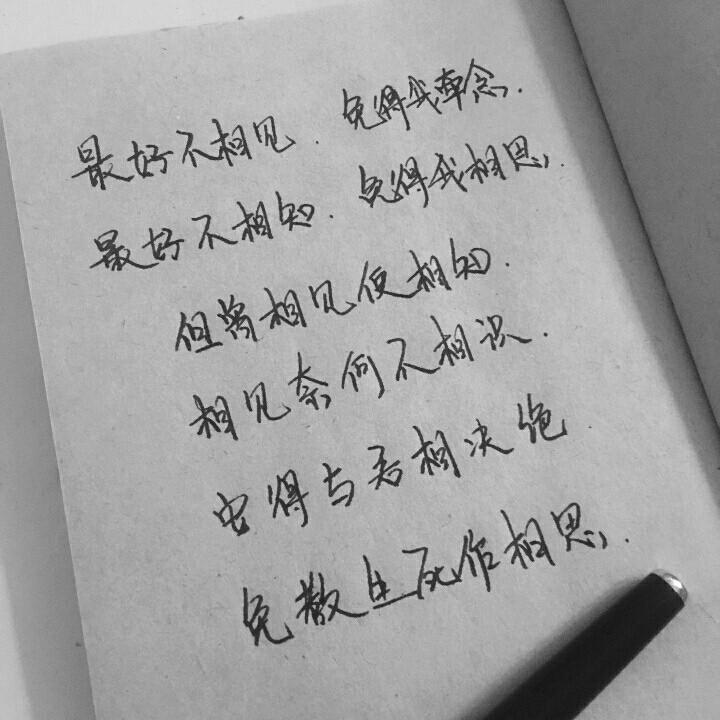 最好不相见.免得我牵念.
最好不相知.免得我相思.
但曾相见便相知.
相见奈何不相识.
安得与君相决绝
免教生死作相思.